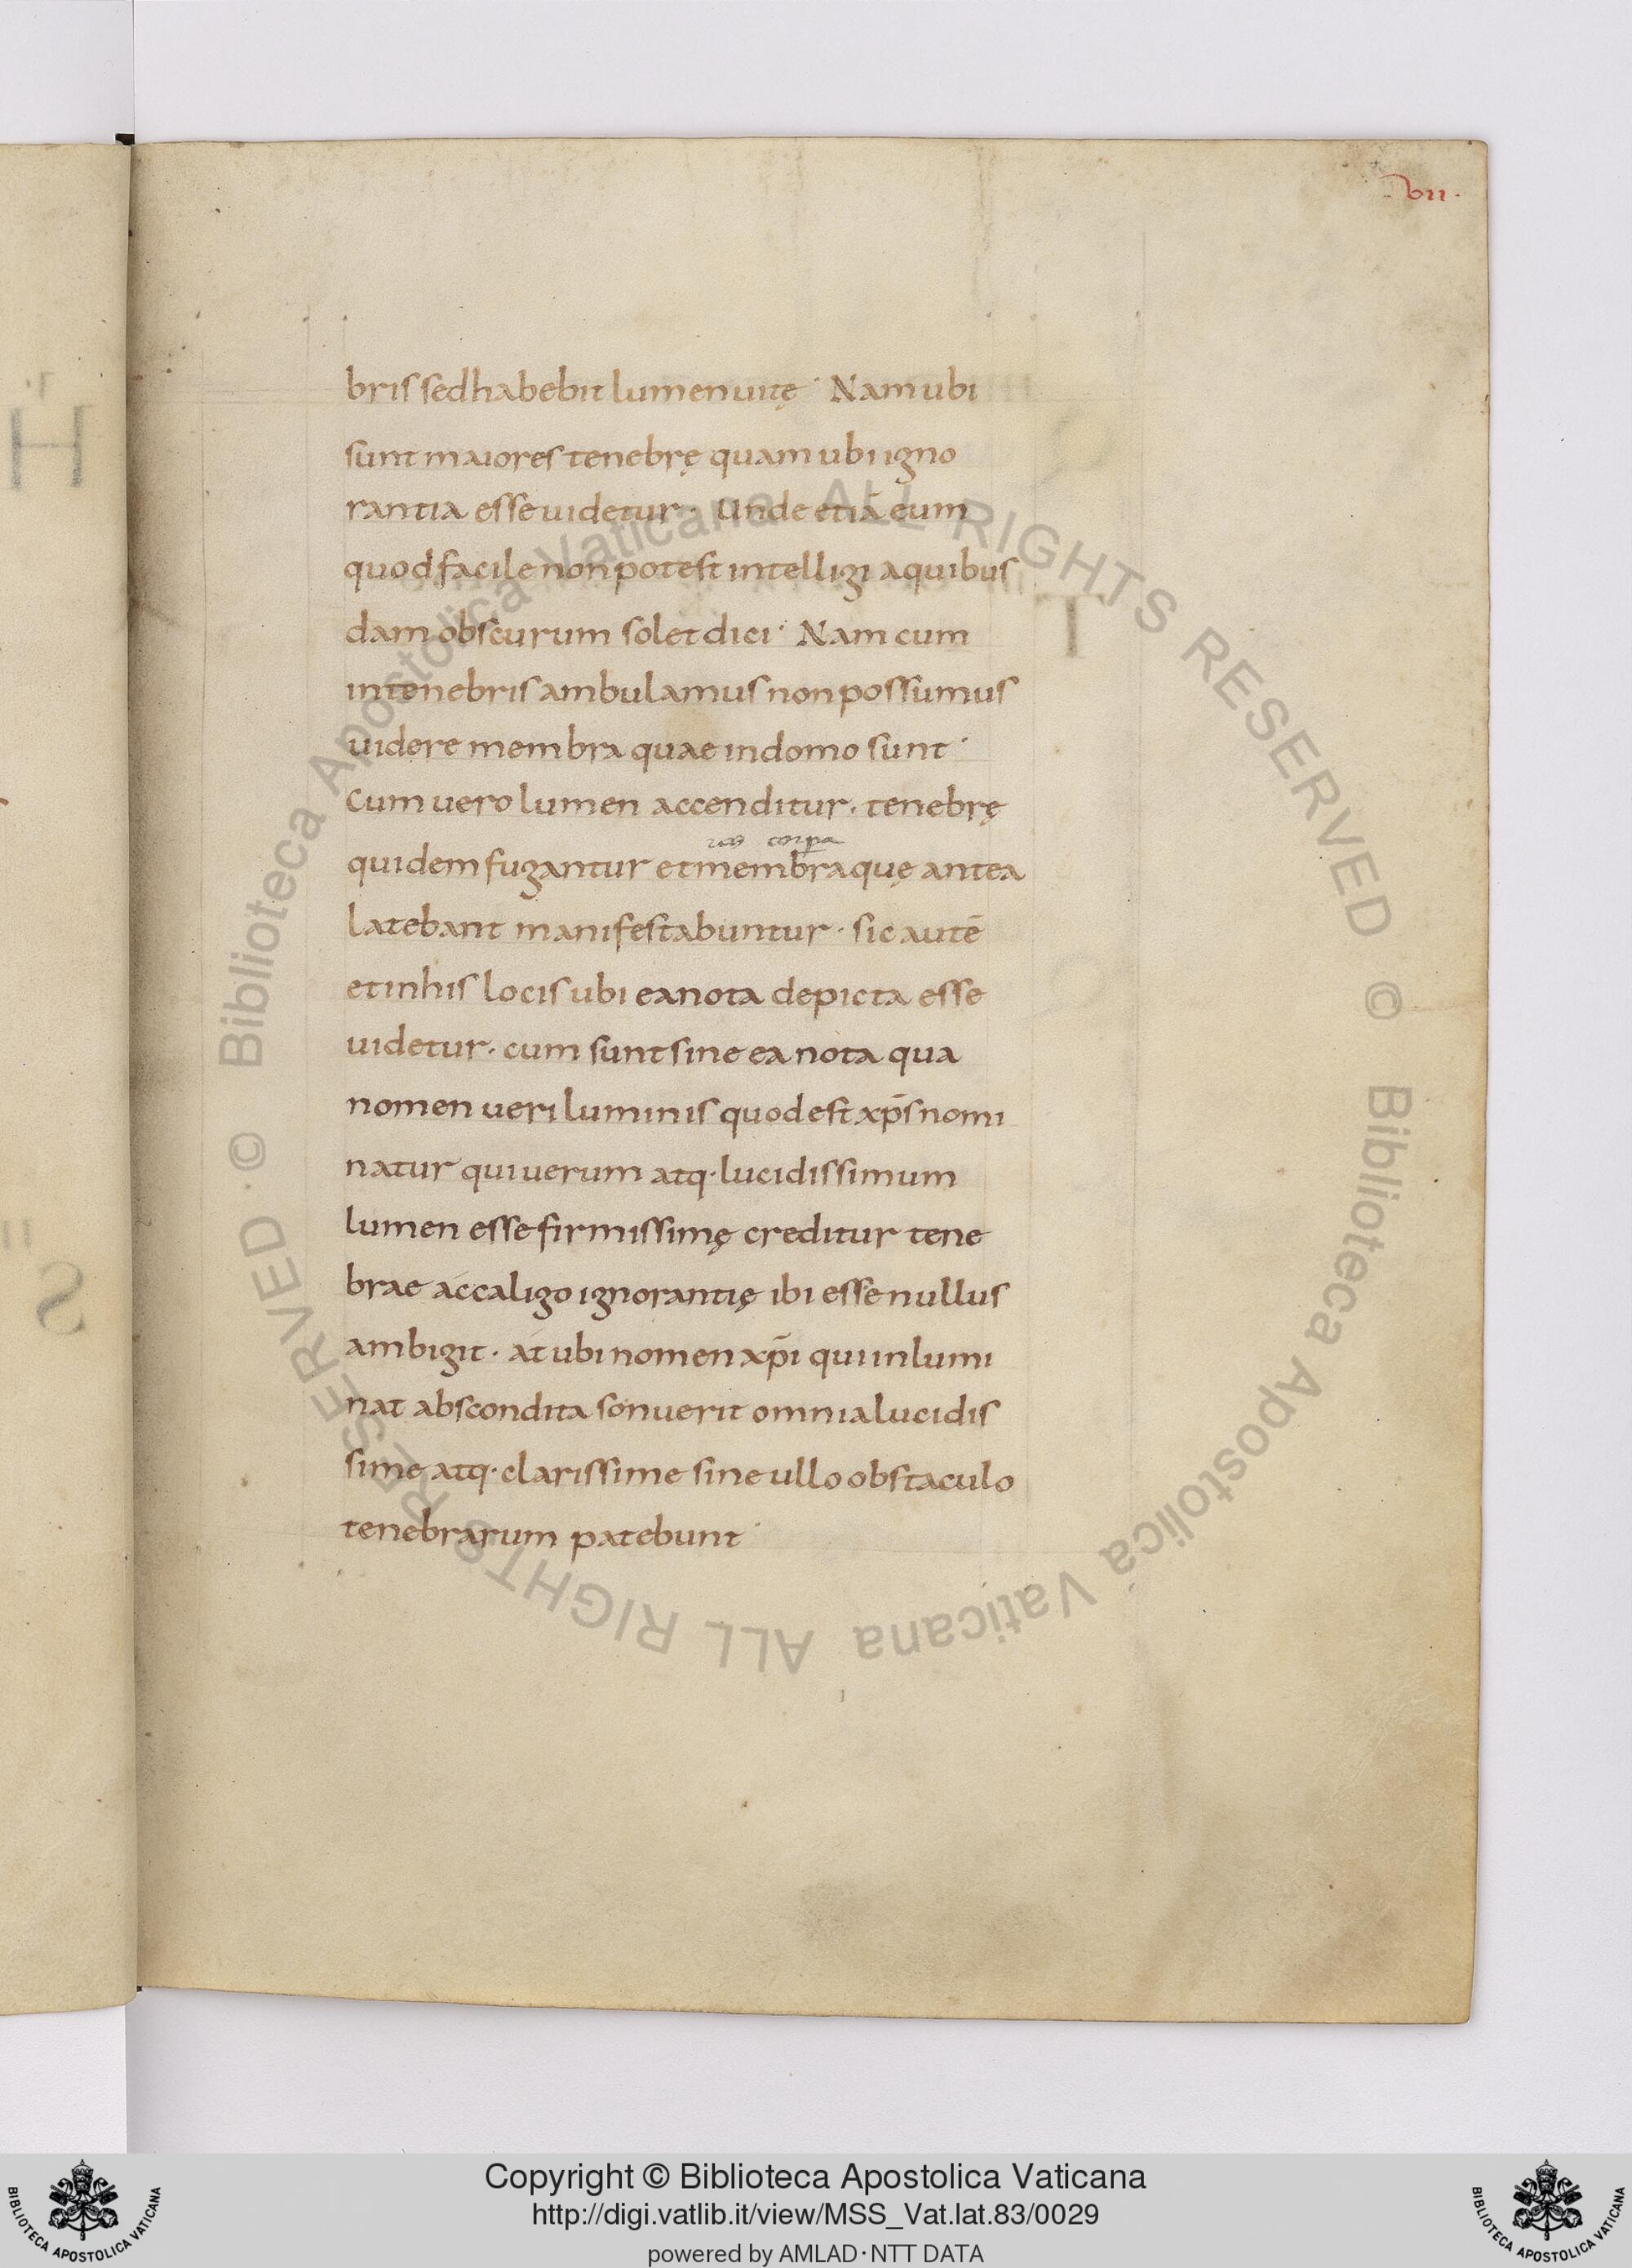 vii.
bris sed habebit lumen uitę · Nam ubi
sunt maiores tenebrę quam ubi igno
rantia esse uidetur · Unde etiā eum
quod facile non potest intelligi a quibus
dam obscurum solet dici · Nam cum
in tenebris ambulamus non possumus
uidere membra quae in domo sunt ·
Cum uero lumen accenditur · tenebrę
corpa
quidem fugantur et membra quę antea
latebant manifestabuntur · sic autē
et in his locis ubi ea nota depicta esse
uidetur · cum sunt sine ea nota qua
nomen ueri luminis quod est xp̄s nomi
natur qui uerum atq· lucidissimum
lumen esse firmissimę creditur tene
brae ac caligo ignorantię ibi esse nullus
ambigit · at ubi nomen xp̄i qui inlumi
nat abscondita sonuerit omnia lucidis
sime atq· clarissime sine ullo obstaculo
tenebrarum patebunt ·
H
S
T
© Biblioteca Apostolica Vaticana ALL RIGHTS RESERVED · © Biblioteca Apostolica Vaticana ALL RIGHTS RESERVED ·
Copyright © Biblioteca Apostolica Vaticana
http://digi.vatlib.it/view/MSS_Vat.lat.83/0029
powered by AMLAD·NTT DATA
BIBLIOTECA APOSTOLICA VATICANA
BIBLIOTECA APOSTOLICA VATICANA